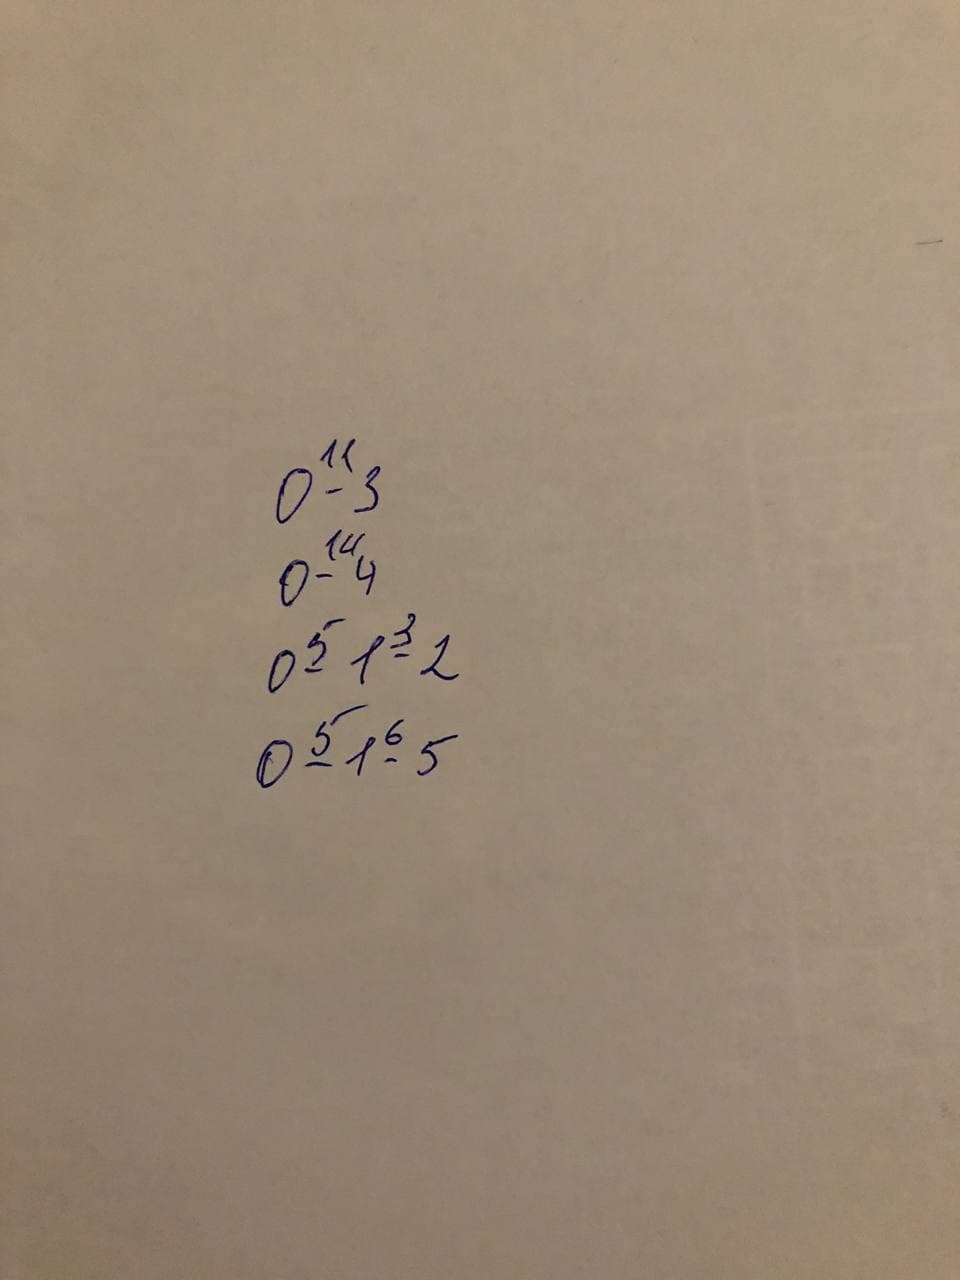 0 11- 3
0 14- 4
0 5- 1 3- 2
0 5- 1 6- 5